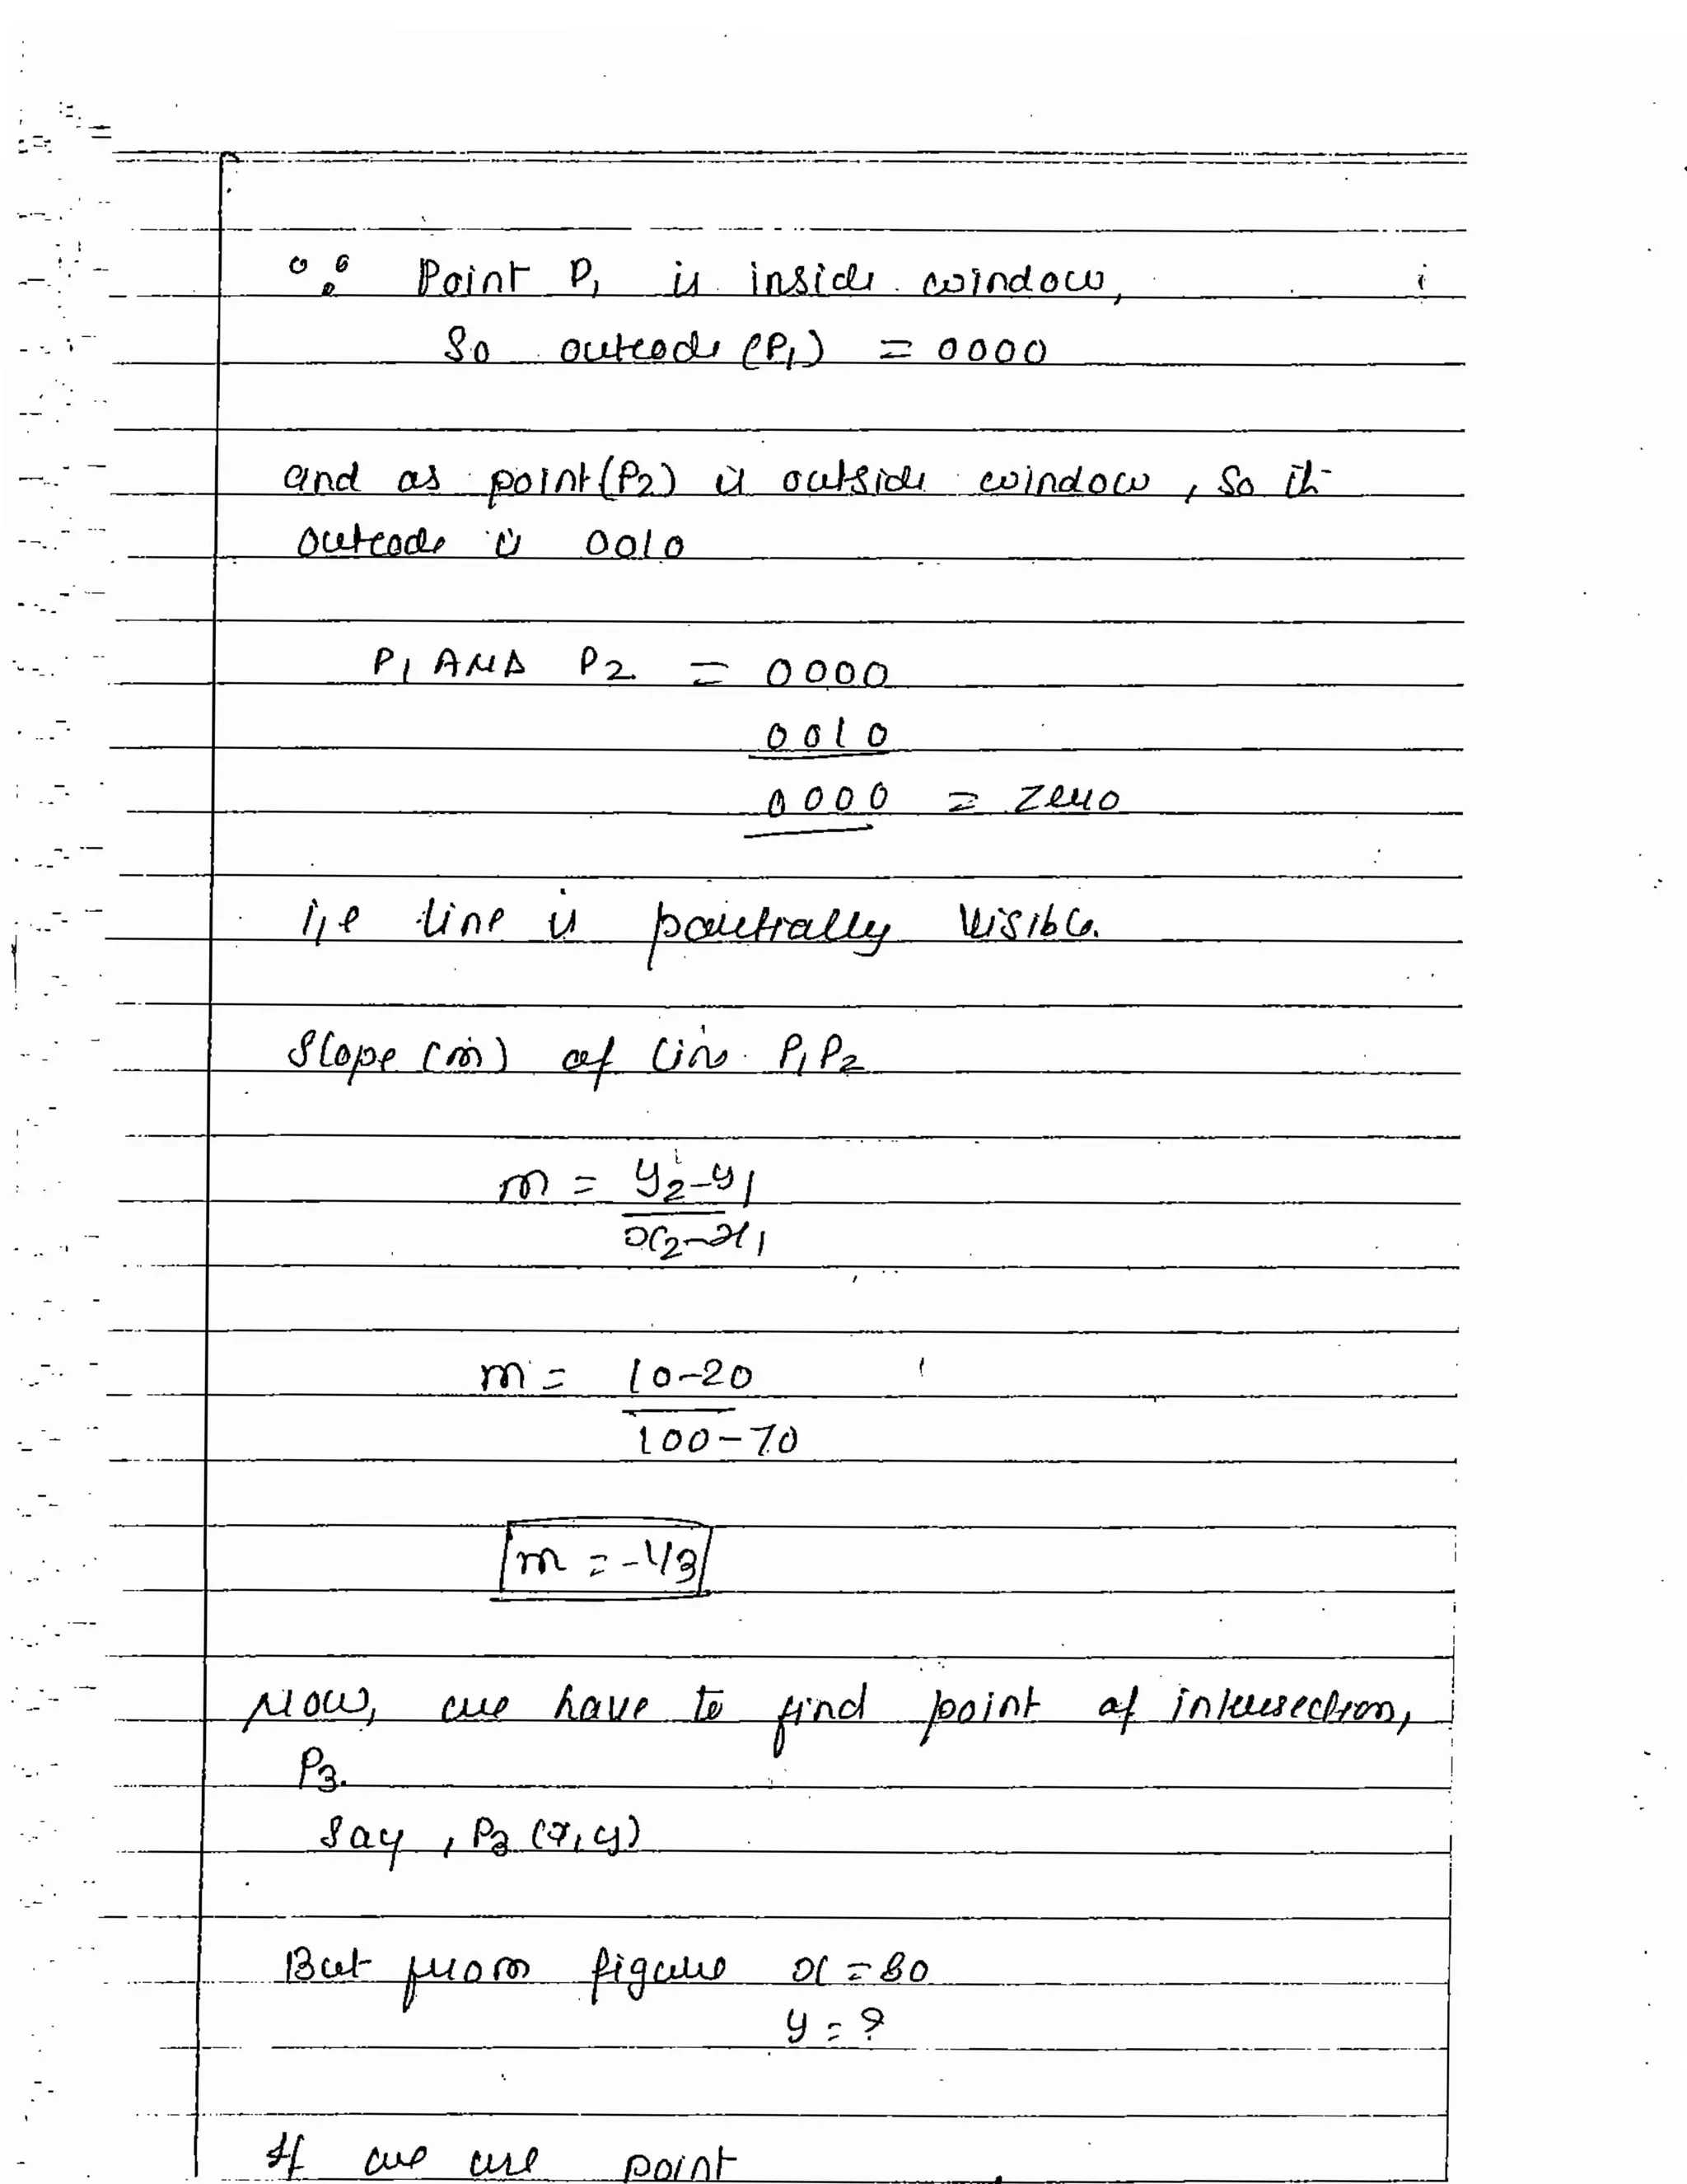 ∵ Point P1 is inside window,
So outcode (P1) = 0000
and as point (P2) is outside window, so it
outcode is 0010
P1 AND P2 = 0000
0010
0000 = zero
i,e line is partially visible.
Slope (m) of line P1P2
m = y2-y1
x2-x1
m = 10-20
100-70
m = -1/3
Now, we have to find point of intersection,
P3.
Say, P3 (x, y)
But from figure x = 80
y = ?
If we use point